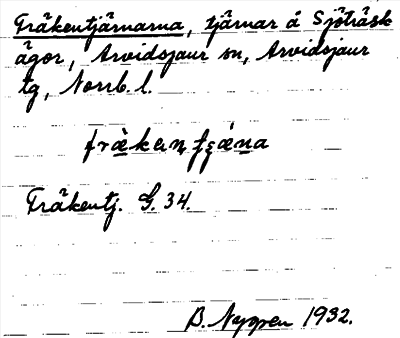 Fräkentjärnarna, tjärnar å Sjöträsk
ägor, Arvidsjaur sn, Arvidsjaur
tg, Norrb. l.
Fräkentj. G. 34.
B. Nyppen 1932.